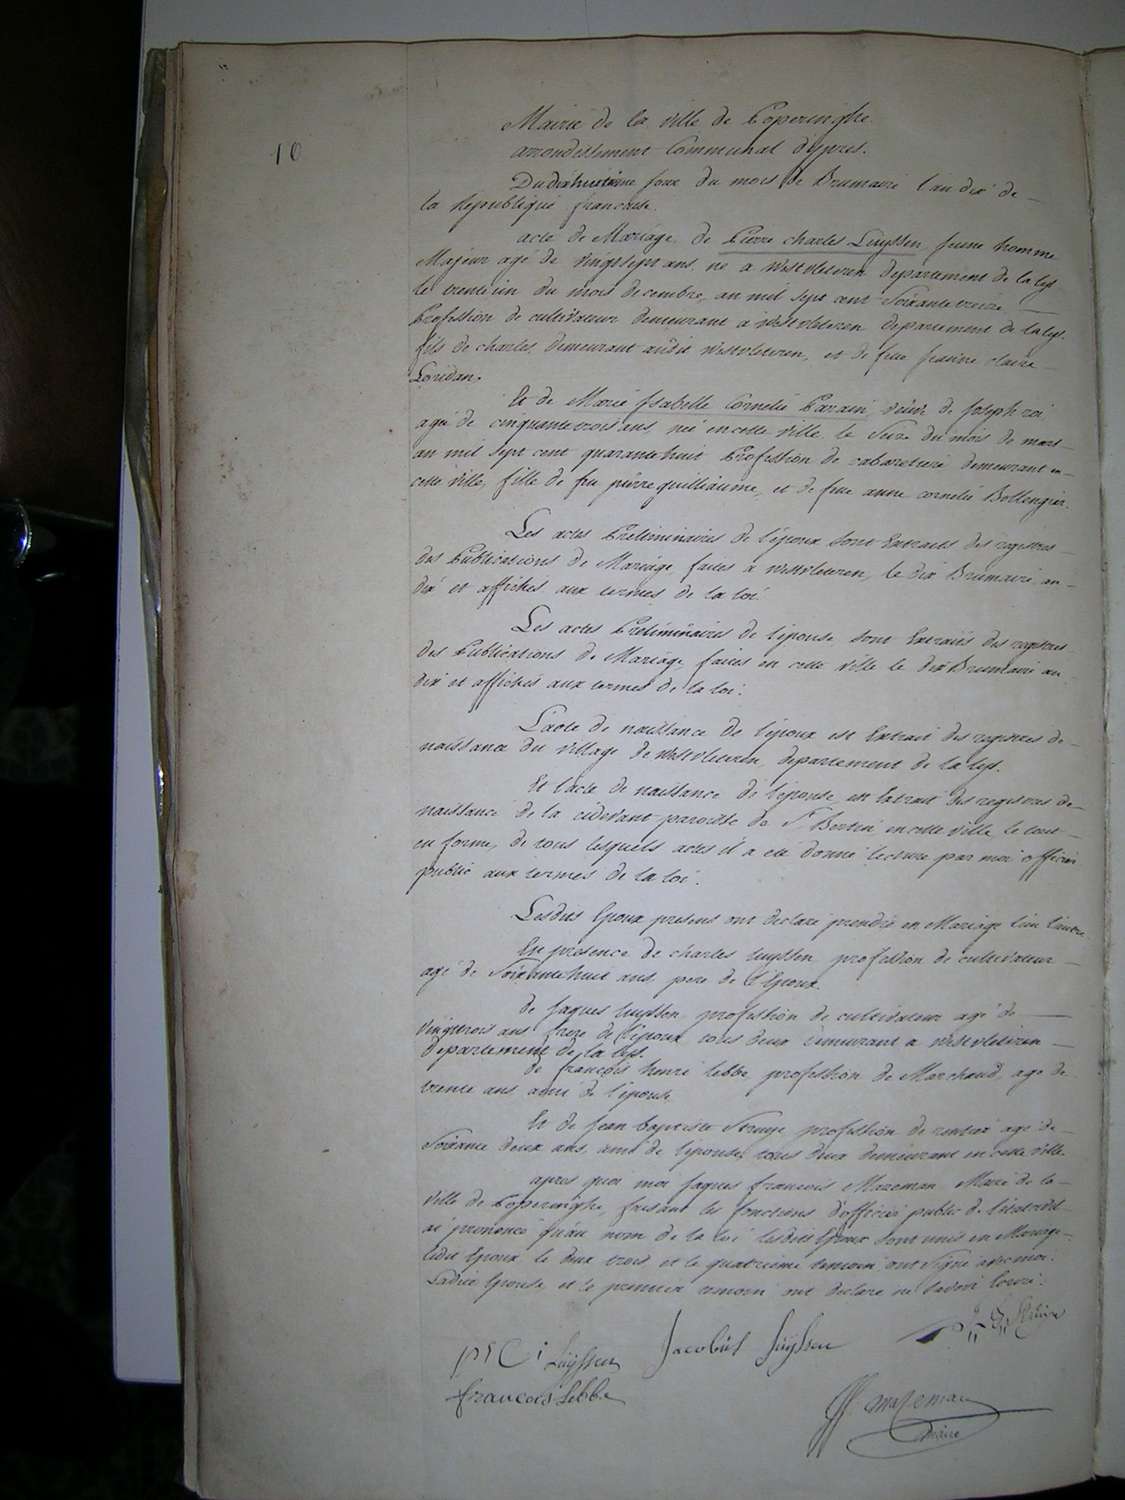 10
Mairie de la ville de Poperinghe
arrondissement Communal d'ypres.
Du dixhuitieme jour du mois de Brumaire l'an dix de
la Republique francaise.
acte de Mariage de Pierre charles Luyssen, jeune homme
Majeur agé de vingtsept ans né a westvleteren departement de la lys
le trente un du mois decembre, an mil sept cent Soixante treize
Profession de cultivateur demeurant a westvleteren departement de la lys.
fils de charles, demeurant audit westvleteren, et de feue jeanne claire
Loridan.
Et de Marie Isabelle Cornelie Parain, veuve de Joseph roi
agée de cinquante trois ans, née en cette ville le Seize du mois de mars
an mil sept cent quarante huit Profession de cabaretiere demeurant en
cette ville, fille de feu pierre guilliaume, et de feue anne cornelie Bollengier.
Les actes Preliminaires de l'époux sont Extraits des registres
des Publications de Mariage faites a westvleteren, le dix Brumaire an
dix et affichés aux termes de la loi.
Les actes Preliminaires de l'épouse sont Extraits des registres
des Publications de Mariage faites en cette ville le dix Brumaire an
dix et affichés aux termes de la loi.
L'acte de naissance de l'époux est Extrait des registres de
naissance du village de westvleteren, departement de la lys.
Et l'acte de naissance de l'épouse est Extrait des registres de
naissance de la cidevant paroisse de St Bertin en cette ville, le tout
en forme, de tous lesquels actes il a été donné lecture par moi officier
public aux termes de la loi.
Lesdits Epoux presens ont declaré prendre en Mariage l'un l'autre
En presence de charles luyssen profession de cultivateur
agé de Soixante huit ans pere de l'Epoux.
de jaques luyssen, profession de cultivateur agé de
vingttrois ans frere de l'époux tous deux demeurant a westvleteren
departement de la lys.
de françois henri lebbe profession de Marchand, agé de
trente ans ami de l'épouse
Et de Jean baptiste Struye profession de rentier agé de
Soixante deux ans, ami de l'épouse, tous deux demeurant en cette ville.
apres quoi moi jaques francois Mazeman Maire de la
ville de Poperinghe, faisant les fonctions d'officier public de l'etat civil
ai prononcé qu'au nom de la loi lesdits Epoux sont unis en Mariage
ledit Epoux, le deux trois et le quatrieme temoin ont Signé avec moi.
Ladite Epouse et le premier temoin ont declaré ne Savoir Ecrire.
Luyssen Jacobus luyssen Struye
francois Lebbe mazeman
maire